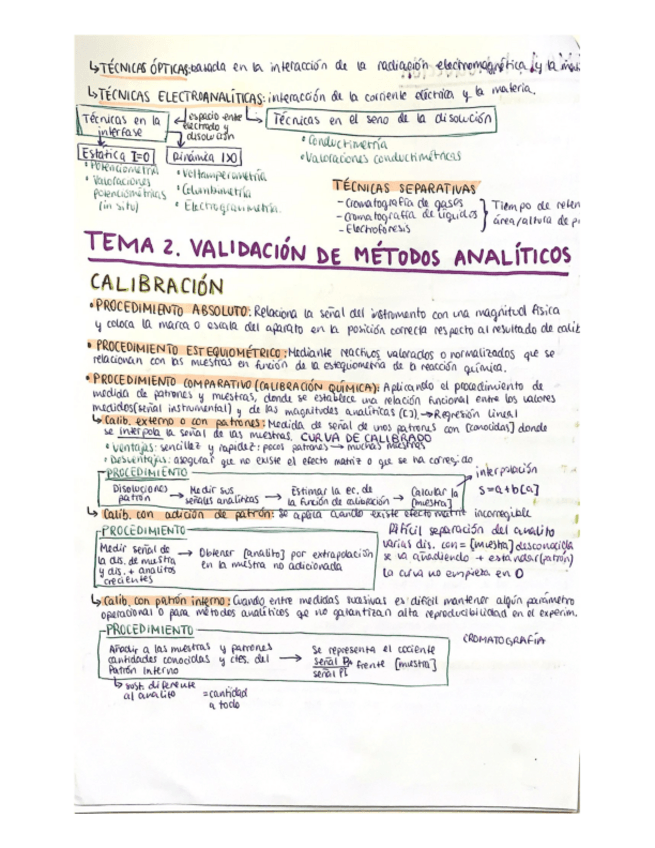 ↳TÉCNICAS ÓPTICAS: basada en la interacción de la radiación electromagnética y la
↳TÉCNICAS ELECTROANALÍTICAS: interacción de la corriente eléctrica y la materia.
Técnicas en la interfase
espacio entre electrodo y disolución
Técnicas en el seno de la disolución
Estática I=0
Dinámica I>0
• Conductimetría
• Valoraciones conductimétricas
• Potenciometría
• Valoraciones potenciométricas (in situ)
• Voltamperometría
• Columbimetría
• Electrogravimetría.
TÉCNICAS SEPARATIVAS
- Cromatografía de gases
- Cromatografía de líquidos
- Electroforesis
Tiempo de reten
área/altura de p
TEMA 2. VALIDACIÓN DE MÉTODOS ANALÍTICOS
CALIBRACIÓN
• PROCEDIMIENTO ABSOLUTO: Relaciona la señal del instrumento con una magnitud física
y coloca la marca o escala del aparato en la posición correcta respecto al resultado de calib
• PROCEDIMIENTO ESTEQUIOMÉTRICO: Mediante reactivos valorados o normalizados que se
relacionan con las muestras en función de la estequiometría de la reacción química.
• PROCEDIMIENTO COMPARATIVO (CALIBRACIÓN QUÍMICA): Aplicando el procedimiento de
medida de patrones y muestras, donde se establece una relación funcional entre los valores
medidos (señal instrumental) y de las magnitudes analíticas (C). → Regresión lineal
↳ Calib. externo o con patrones: Medida de señal de unos patrones con [conocidas] donde
se interpola la señal de las muestras. CURVA DE CALIBRADO
• Ventajas: sencillez y rapidez: pocos patrones → muchas muestras
• Desventajas: asegurar que no existe el efecto matriz o que se ha corregido
PROCEDIMIENTO
interpolación
Disoluciones patrón → Medir sus señales analíticas → Estimar la ec. de la función de calibración → Calcular la [muestra]
s=a+b[a]
↳ Calib. con adición de patrón: se aplica cuando existe efecto matriz incorregible
PROCEDIMIENTO
Difícil separación del analito
Medir señal de la dis. de muestra y dis. + analitos crecientes → Obtener [analito] por extrapolación en la muestra no adicionada
varias dis. con = [muestra] desconocida
se va añadiendo + estándar (patrón)
La curva no empieza en 0
↳ Calib. con patrón interno: Cuando entre medidas sucesivas es difícil mantener algún parámetro
operacional o para métodos analíticos que no garantizan alta reproducibilidad en el experim.
PROCEDIMIENTO
CROMATOGRAFÍA
Añadir a las muestras y patrones cantidades conocidas y ctes. del Patrón Interno → Se representa el cociente señal P/señal PI frente [muestra]
↳ sust. diferente al analito
= cantidad a todo